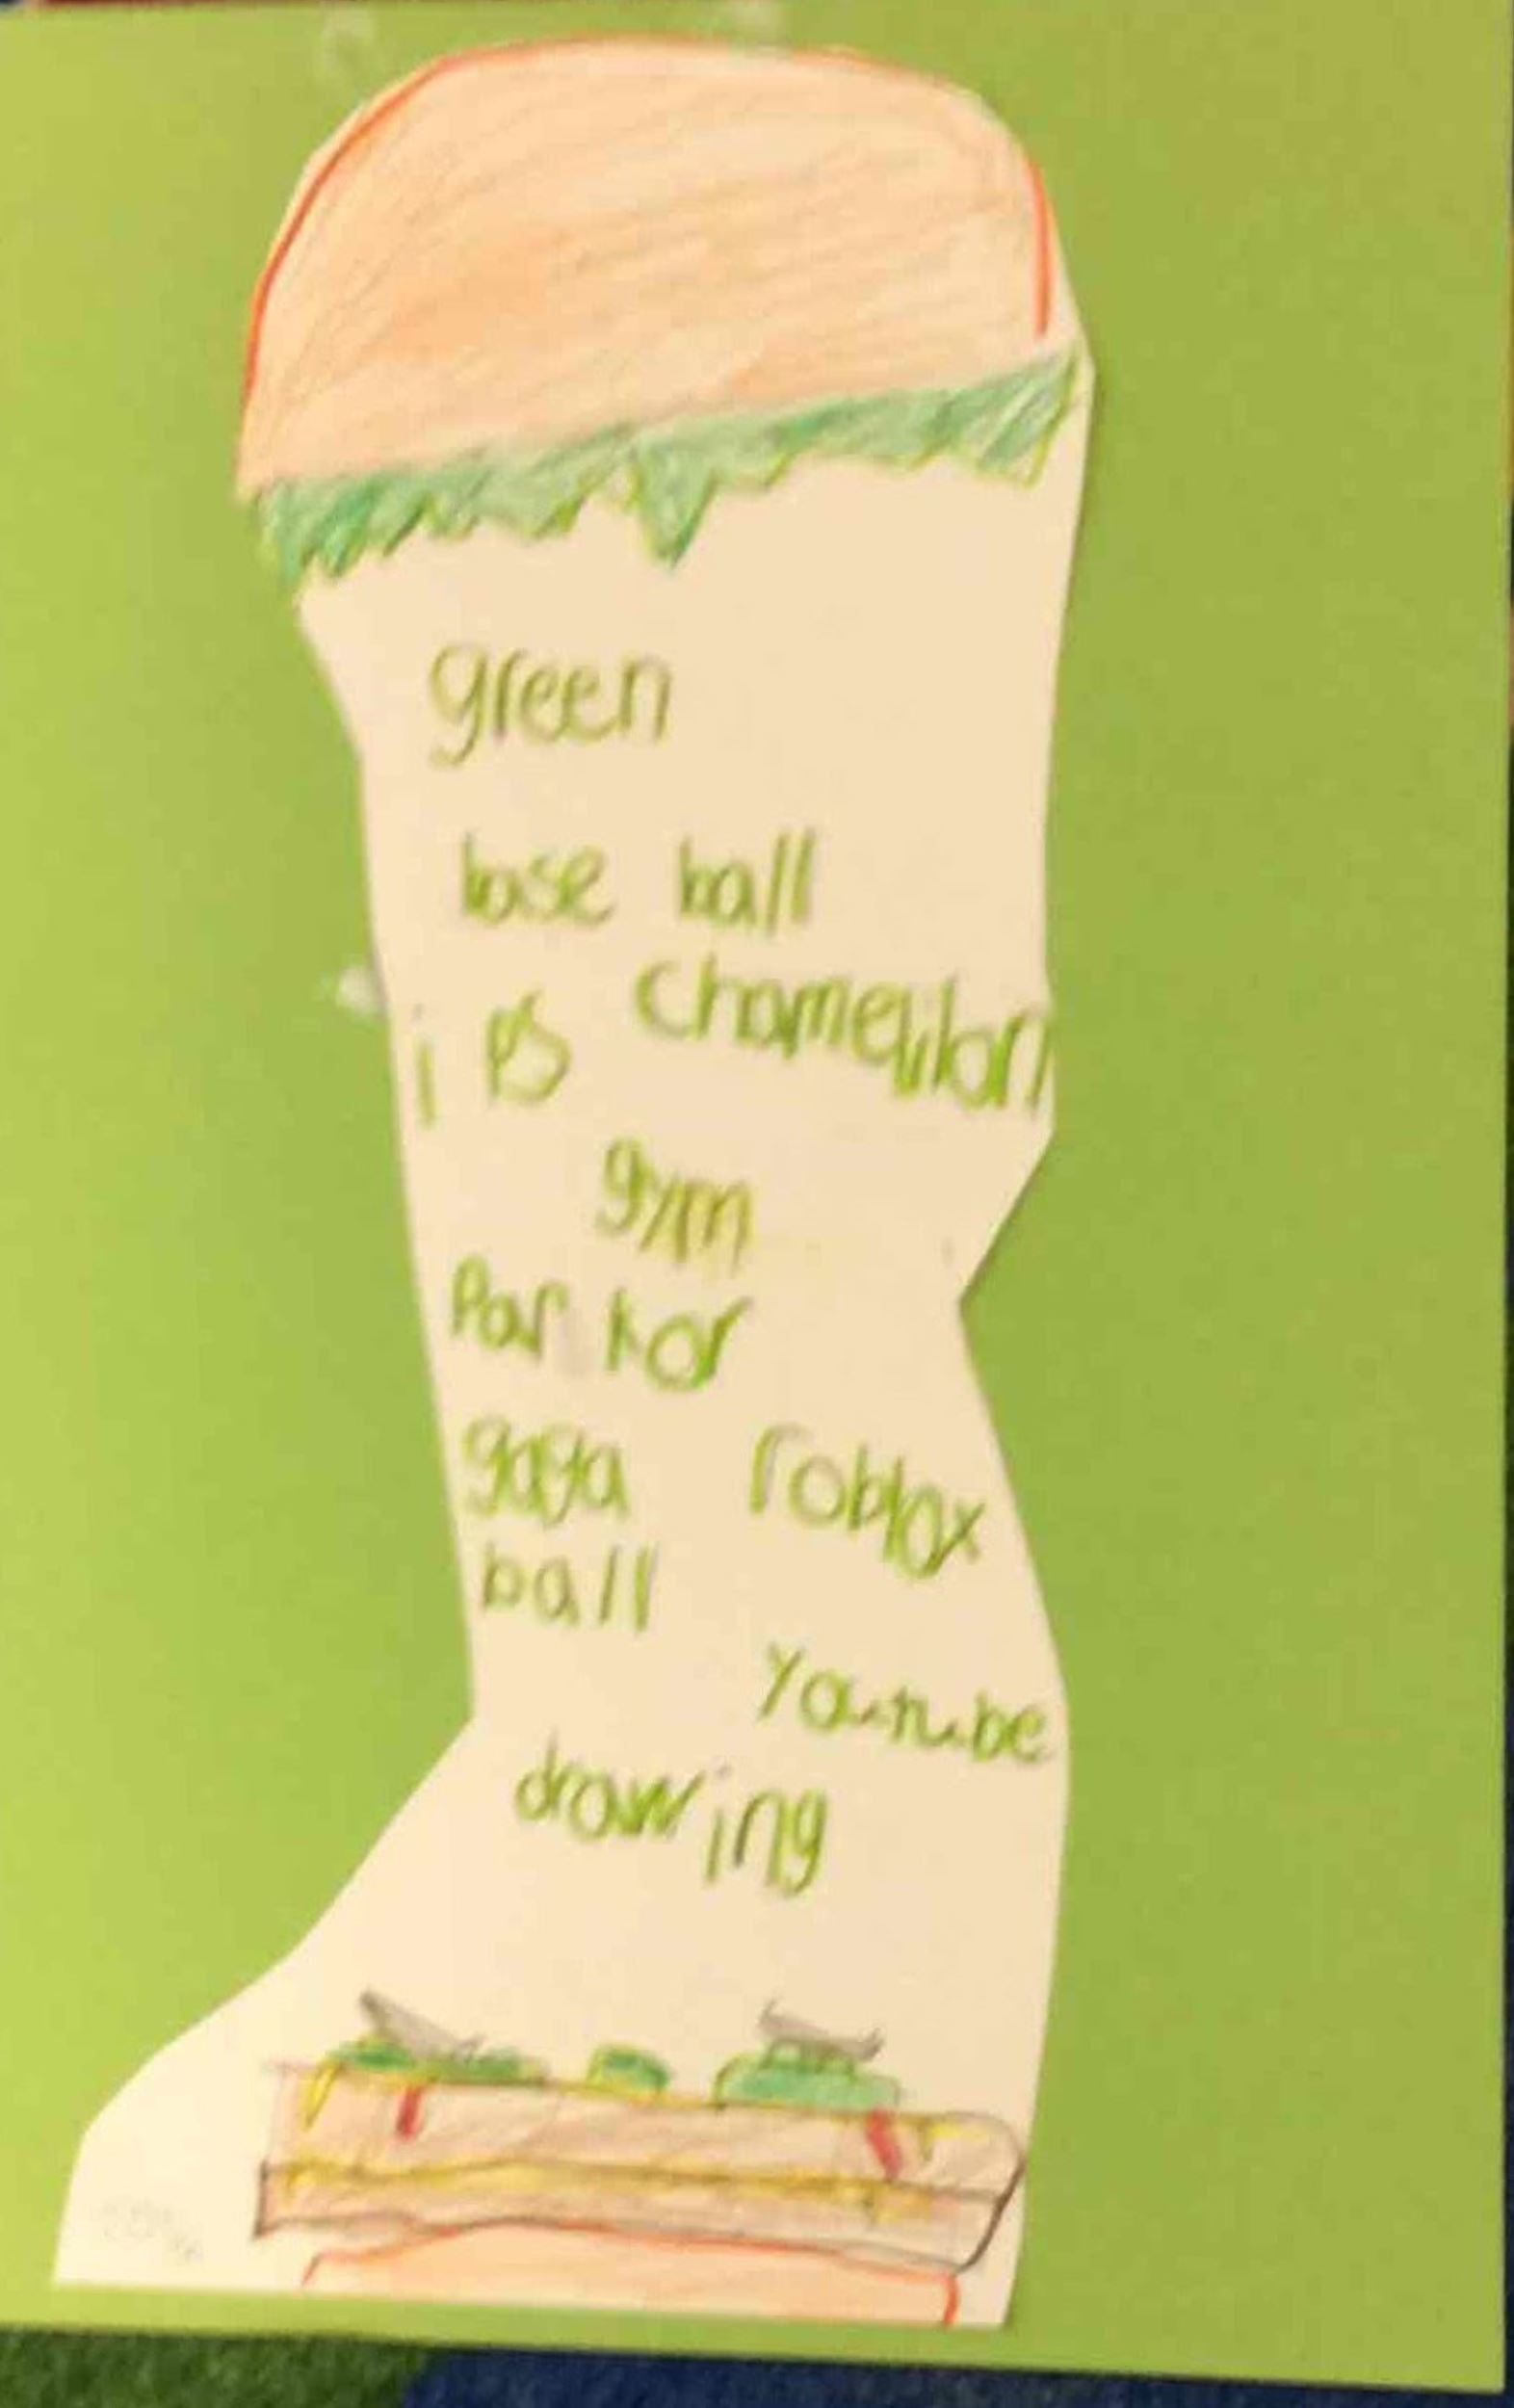 green
base ball
chamelilon
i PS
gym
Par kor
gaga
roblox
ball
Youtube
drawing